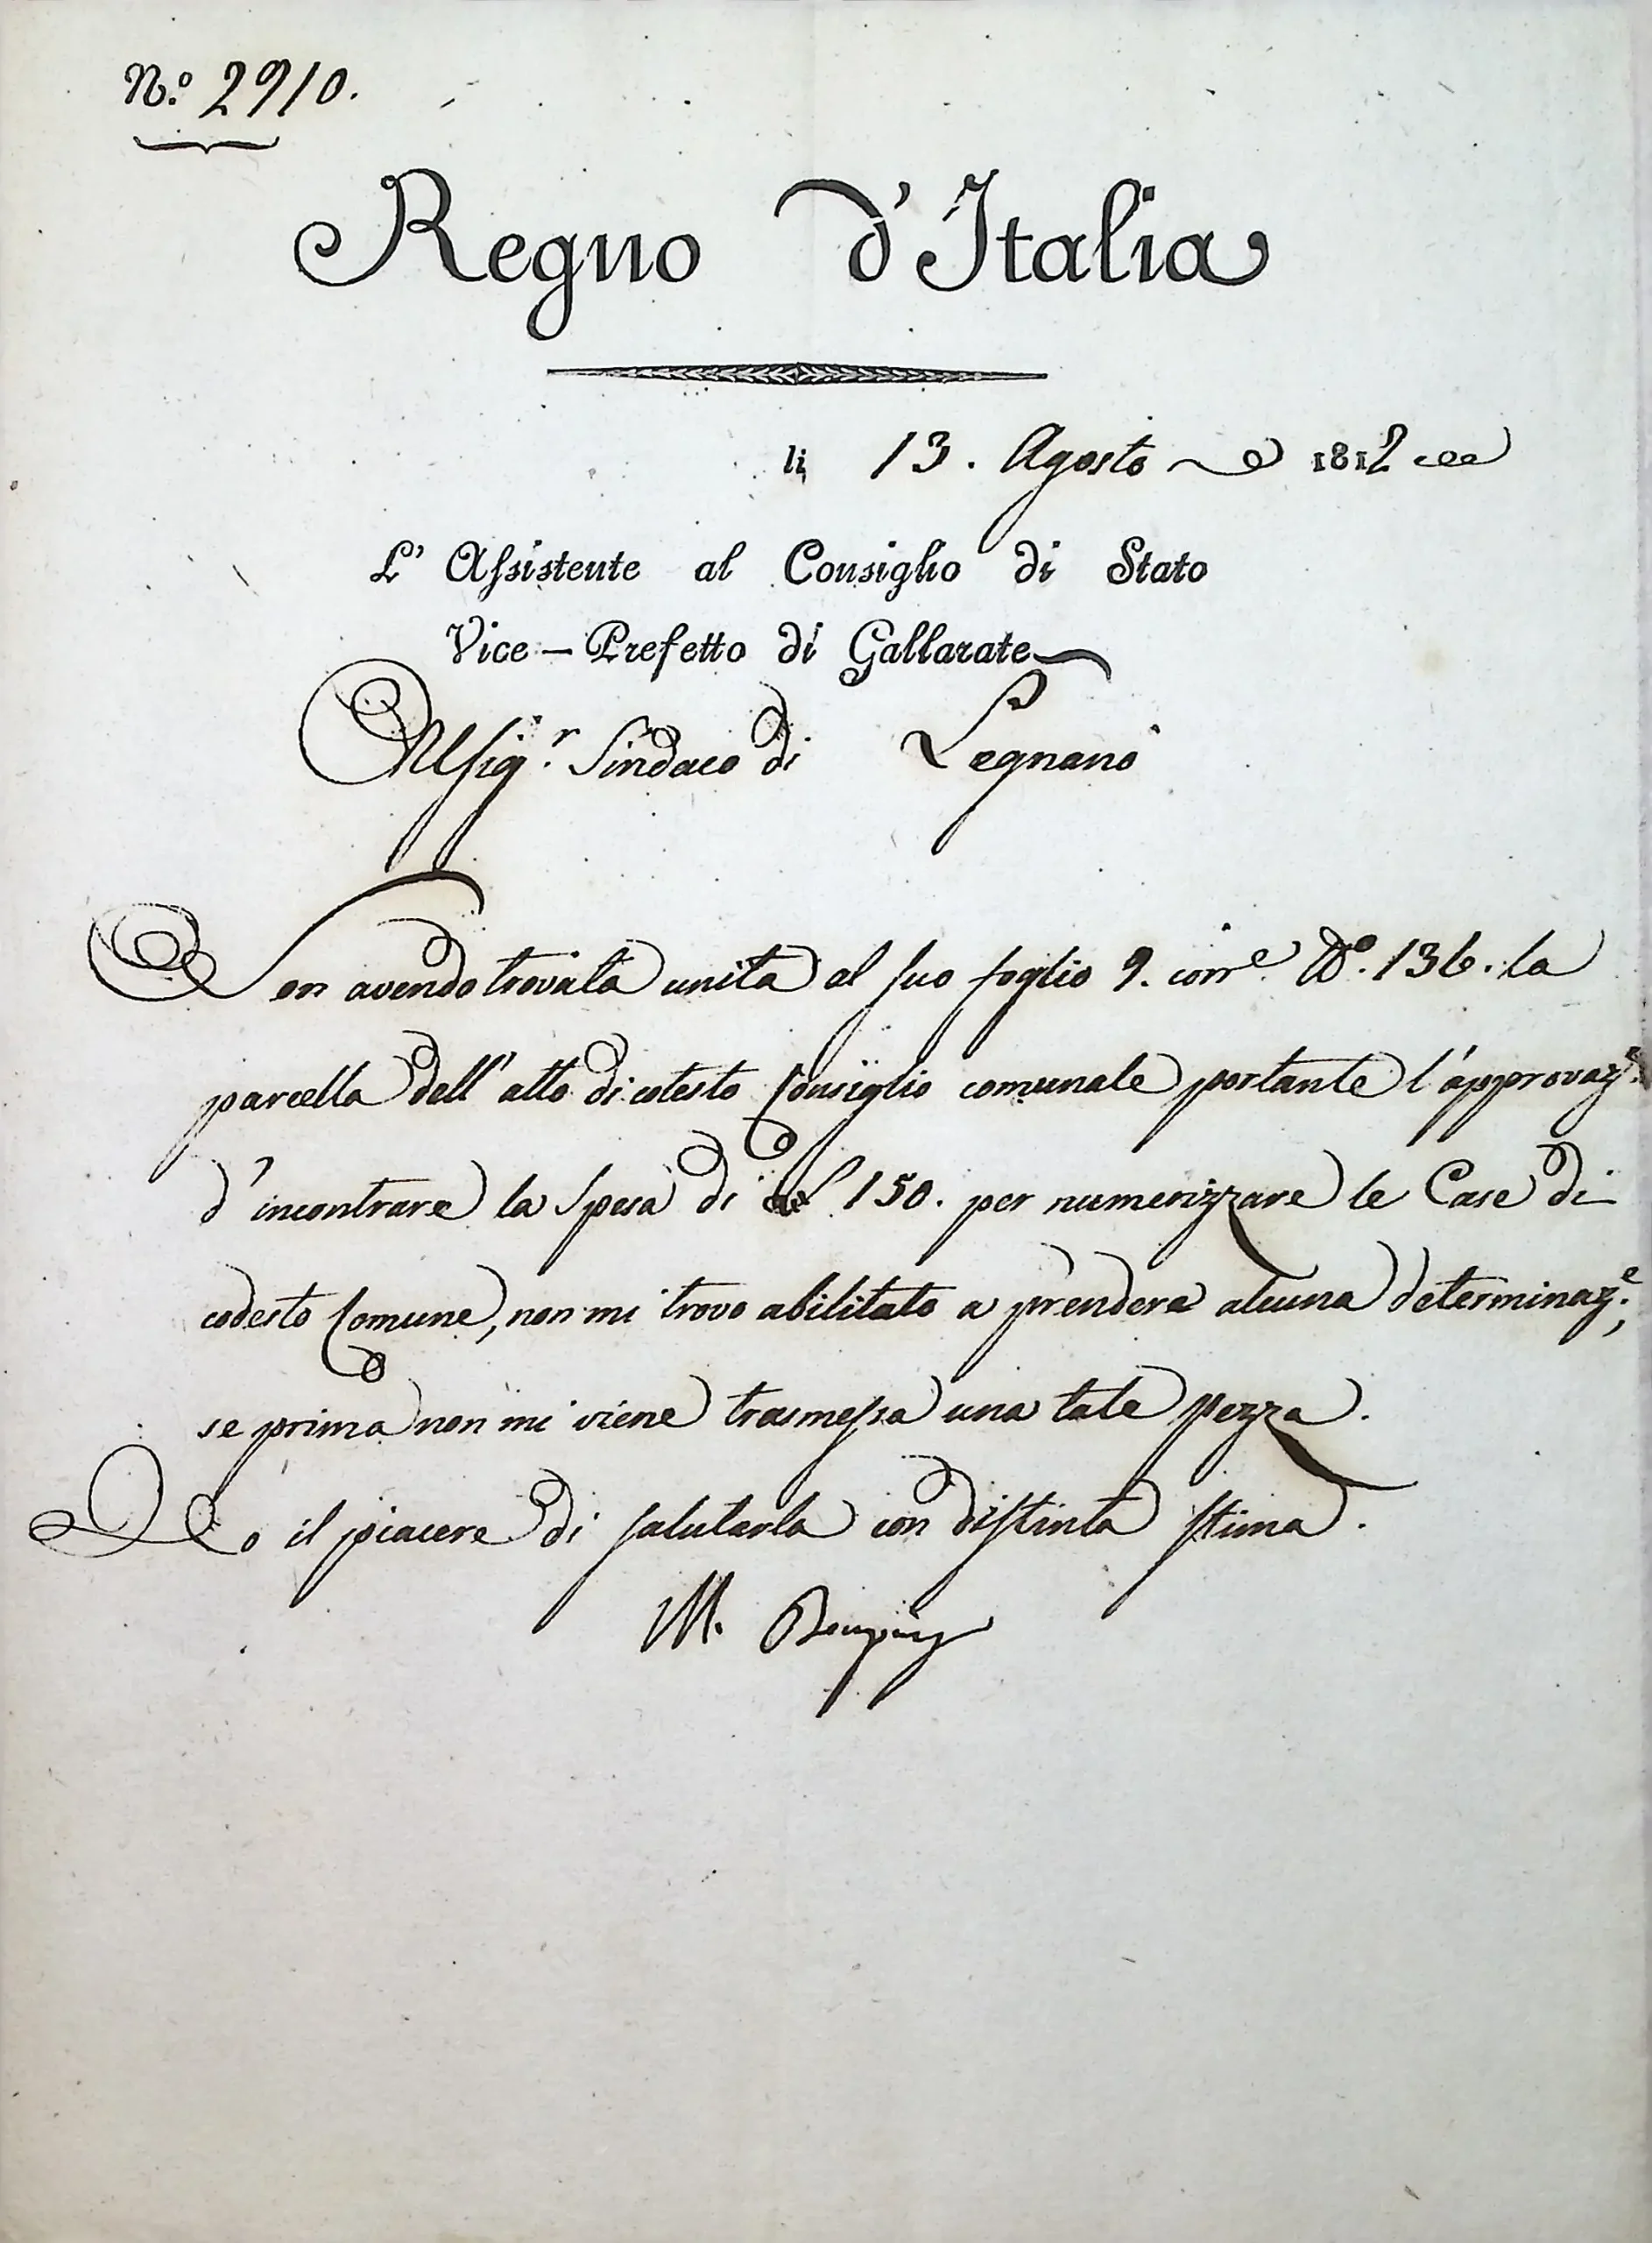 N.º 2910.
Regno d'Italia
li 13. Agosto 1812
L' Assistente al Consiglio di Stato
Vice-Prefetto di Gallarate
Al Sig.r Sindaco di Legnano
Non avendo trovata unita al suo foglio 9. corr.e N.º 136. la
parcella dell' atto di cotesto Consiglio comunale portante l'approvaz.e
d'incontrare la spesa di 150. per numerizzare le Case di
codesto Comune, non mi trovo abilitato a prendere alcuna determinaz.e,
se prima non mi viene trasmessa una tale pezza.
Ho il piacere di salutarla con distinta stima.
M.